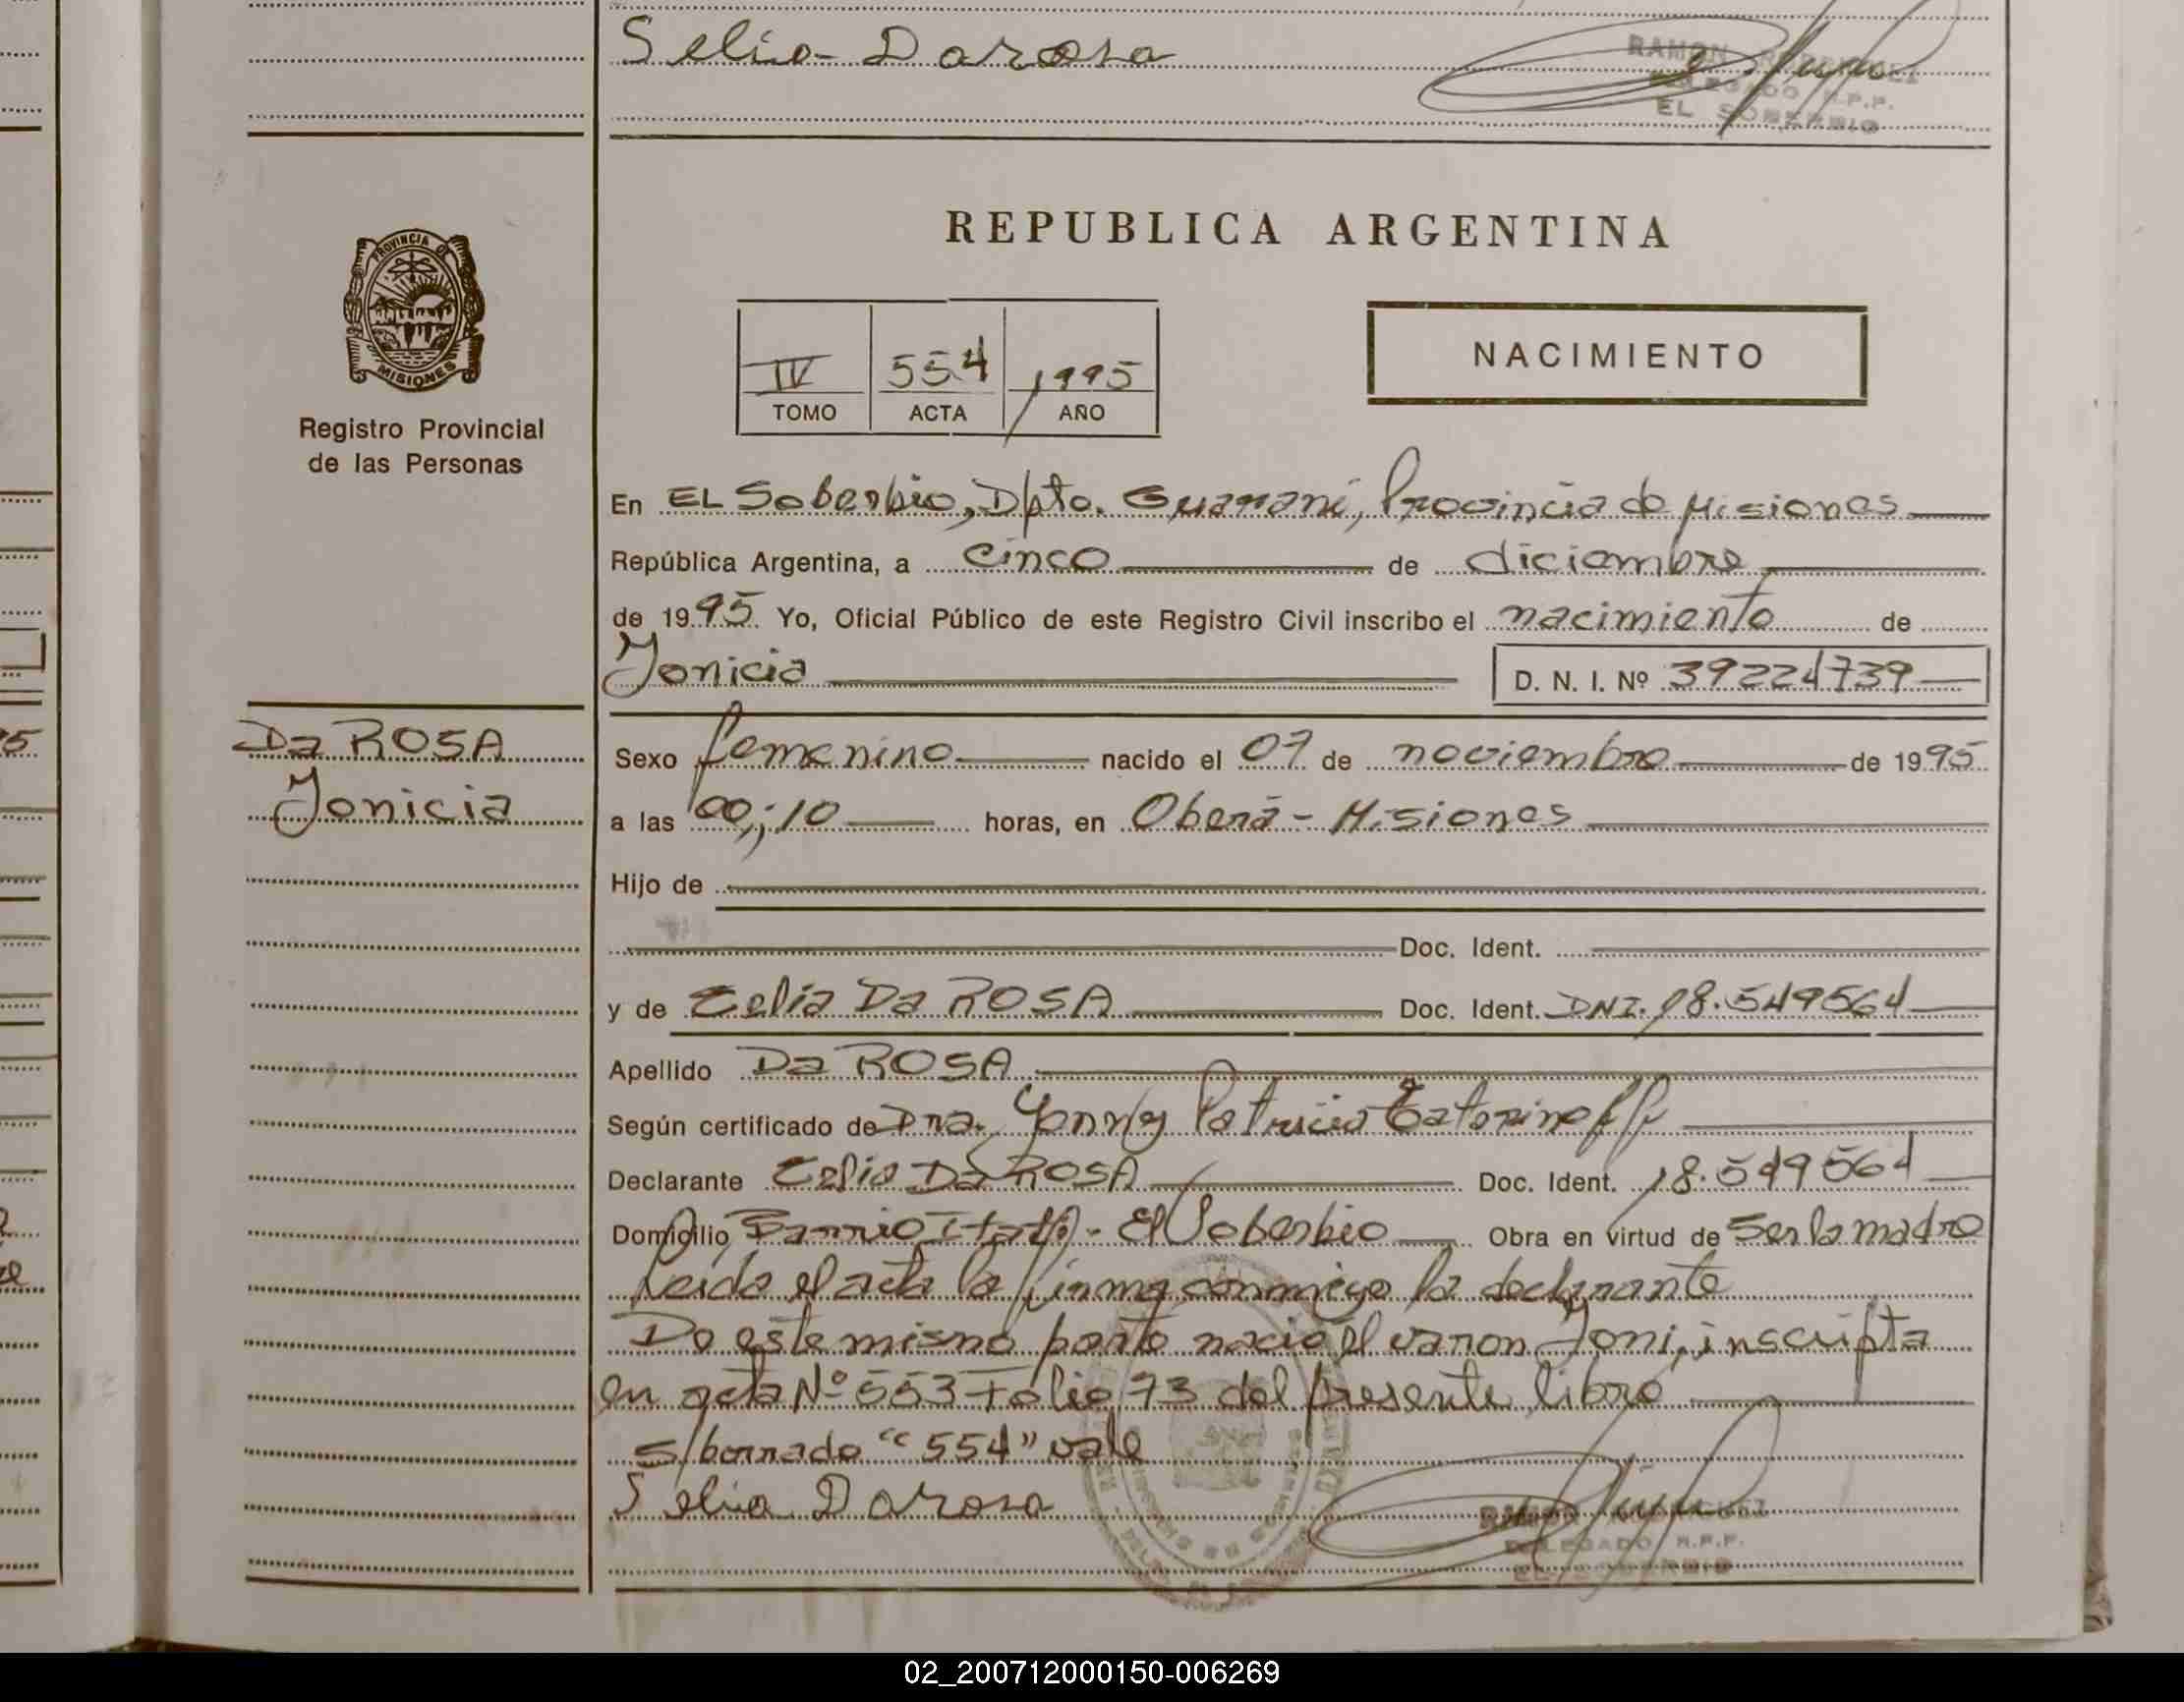 Selia Darosa
EL SOBERBIO
REPUBLICA ARGENTINA
PROVINCIA DE
MISIONES
Registro Provincial
de las Personas
IV 554 1995
TOMO ACTA AÑO
NACIMIENTO
En EL Soberbio, Dpto. Guaraní, Provincia de Misiones
República Argentina, a cinco de diciembre
de 1995 Yo, Oficial Público de este Registro Civil inscribo el nacimiento de
Jonicia D. N. I. Nº 39224739
Da ROSA
Jonicia
Sexo femenino nacido el 07 de noviembre de 1995
a las 00;10 horas, en Oberá - Misiones
Hijo de
Doc. Ident.
y de Celia Da ROSA Doc. Ident. DNI. 18.549564
Apellido Da ROSA
Según certificado de Dra. Patricia
Declarante Celia Da ROSA Doc. Ident. 18.549564
Domicilio Barrio Itatí - El Soberbio Obra en virtud de Ser la madre
Leida el acta la firma conmigo la declarante
De este mismo parto nació el varon Joni, inscripta
en acta Nº 553 Folio 73 del presente libro
s/borrado "554" vale
Selia Darosa
02_200712000150-006269